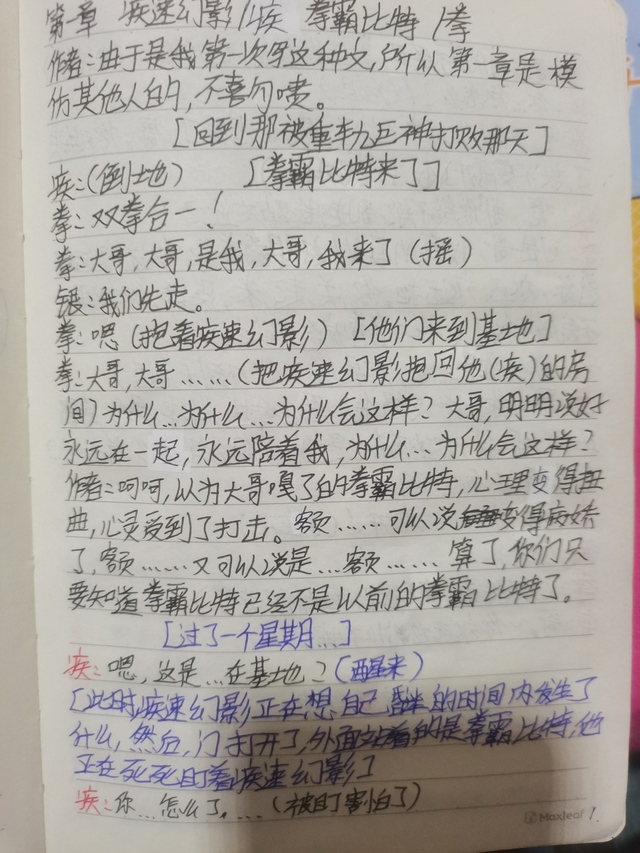 第一章 疾速幻影/疾 拳霸比特/拳
作者:由于是我第一次写这种文,所以第一章是模
仿其他人的,不喜勿喷。
[回到那被重轧巨神打败那天]
疾:(倒地) [拳霸比特来了]
拳:双拳合一!
拳:大哥,大哥,是我,大哥,我来了(摇)
银:我们先走。
拳:嗯(抱着疾速幻影) [他们来到基地]
拳:大哥,大哥……(把疾速幻影抱回他(疾)的房
间)为什么…为什么…为什么会这样?大哥,明明说好
永远在一起,永远陪着我,为什么…为什么会这样?
作者:呵呵,以为大哥嘎了的拳霸比特,心理变得扭
曲,心灵受到了打击。额……可以说变得病娇
了,额……又可以说是…额……算了,你们只
要知道拳霸比特已经不是以前的拳霸比特了。
[过了一个星期…]
疾:嗯,这是…在基地?(醒来)
[此时疾速幻影正在想自己的时间内发生了
什么,然后,门打开了,外面站着的是拳霸比特,他
正在死死盯着疾速幻影]
疾:你…怎么了,…(被盯害怕了)
Maxleaf 1.